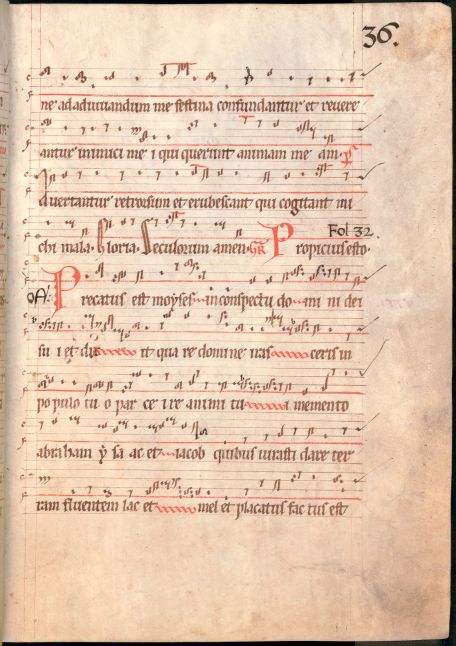 36.
ne ad adiuuandum me festina confundantur et reuere
antur inimici me i qui querunt animam me am. P
A uertantur retrorsum et erubescant qui cogitant mi
Fol 32
chi mala. Gloria. Seculorum amen. GR Propicius esto.
OF. Precatus est moyses in conspectu do mi ni dei
su i et dix it qua re domine iras ceris in
po pulo tu o par ce i re animi tu i memento
abraham ysa ac et iacob quibus iurasti dare ter
ram fluentem lac et mel et placatus fac tus est